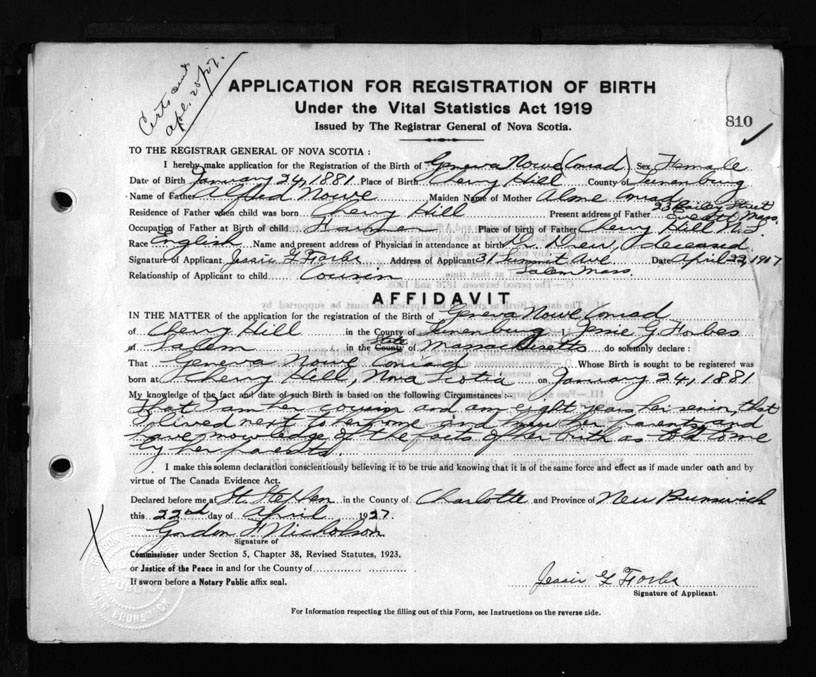 Certs and
apl. 20/27.
APPLICATION FOR REGISTRATION OF BIRTH
Under the Vital Statistics Act 1919
Issued by The Registrar General of Nova Scotia.
810
TO THE REGISTRAR GENERAL OF NOVA SCOTIA :
I hereby make application for the Registration of the Birth of Geneva Nowe (Conrad) Sex Female
Date of Birth January 24, 1881 Place of Birth Cherry Hill County of Lunenburg
Name of Father Alfred Nowe Maiden Name of Mother Conrad
33 Bailey Street
Residence of Father when child was born Cherry Hill Present address of Father Everett Mass.
Occupation of Father at Birth of child Place of birth of Father Cherry Hill N.S.
Race English Name and present address of Physician in attendance at birth Dr. Drew, Deceased.
Signature of Applicant Jessie G Forbes Address of Applicant 31 Summit Ave Date April 22, 1927
Relationship of Applicant to child Cousin Salem Mass.
AFFIDAVIT
IN THE MATTER of the application for the registration of the Birth of Geneva Nowe Conrad
of Cherry Hill in the County of Lunenburg I, Jessie G Forbes
of Salem in the State County of Massachusetts do solemnly declare :
That Geneva Nowe Conrad Whose Birth is sought to be registered was
born at Cherry Hill, Nova Scotia on January 24, 1881
My knowledge of the fact and date of such Birth is based on the following Circumstances :-
That I am her cousin and am eight years her senior, that
I lived next to her home and knew her parents and
have knowledge of the facts of her birth as told to me
by her parents.
I make this solemn declaration conscientiously believing it to be true and knowing that it is of the same force and effect as if made under oath and by
virtue of The Canada Evidence Act.
Declared before me at St. Stephen in the County of Charlotte and Province of New Brunswick
this 22nd day of April 1927.
Gordon F Nicholson
Signature of
Commissioner under Section 5, Chapter 38, Revised Statutes, 1923,
or Justice of the Peace in and for the County of
If sworn before a Notary Public affix seal.
Jessie G Forbes
Signature of Applicant.
For Information respecting the filling out of this Form, see Instructions on the reverse side.